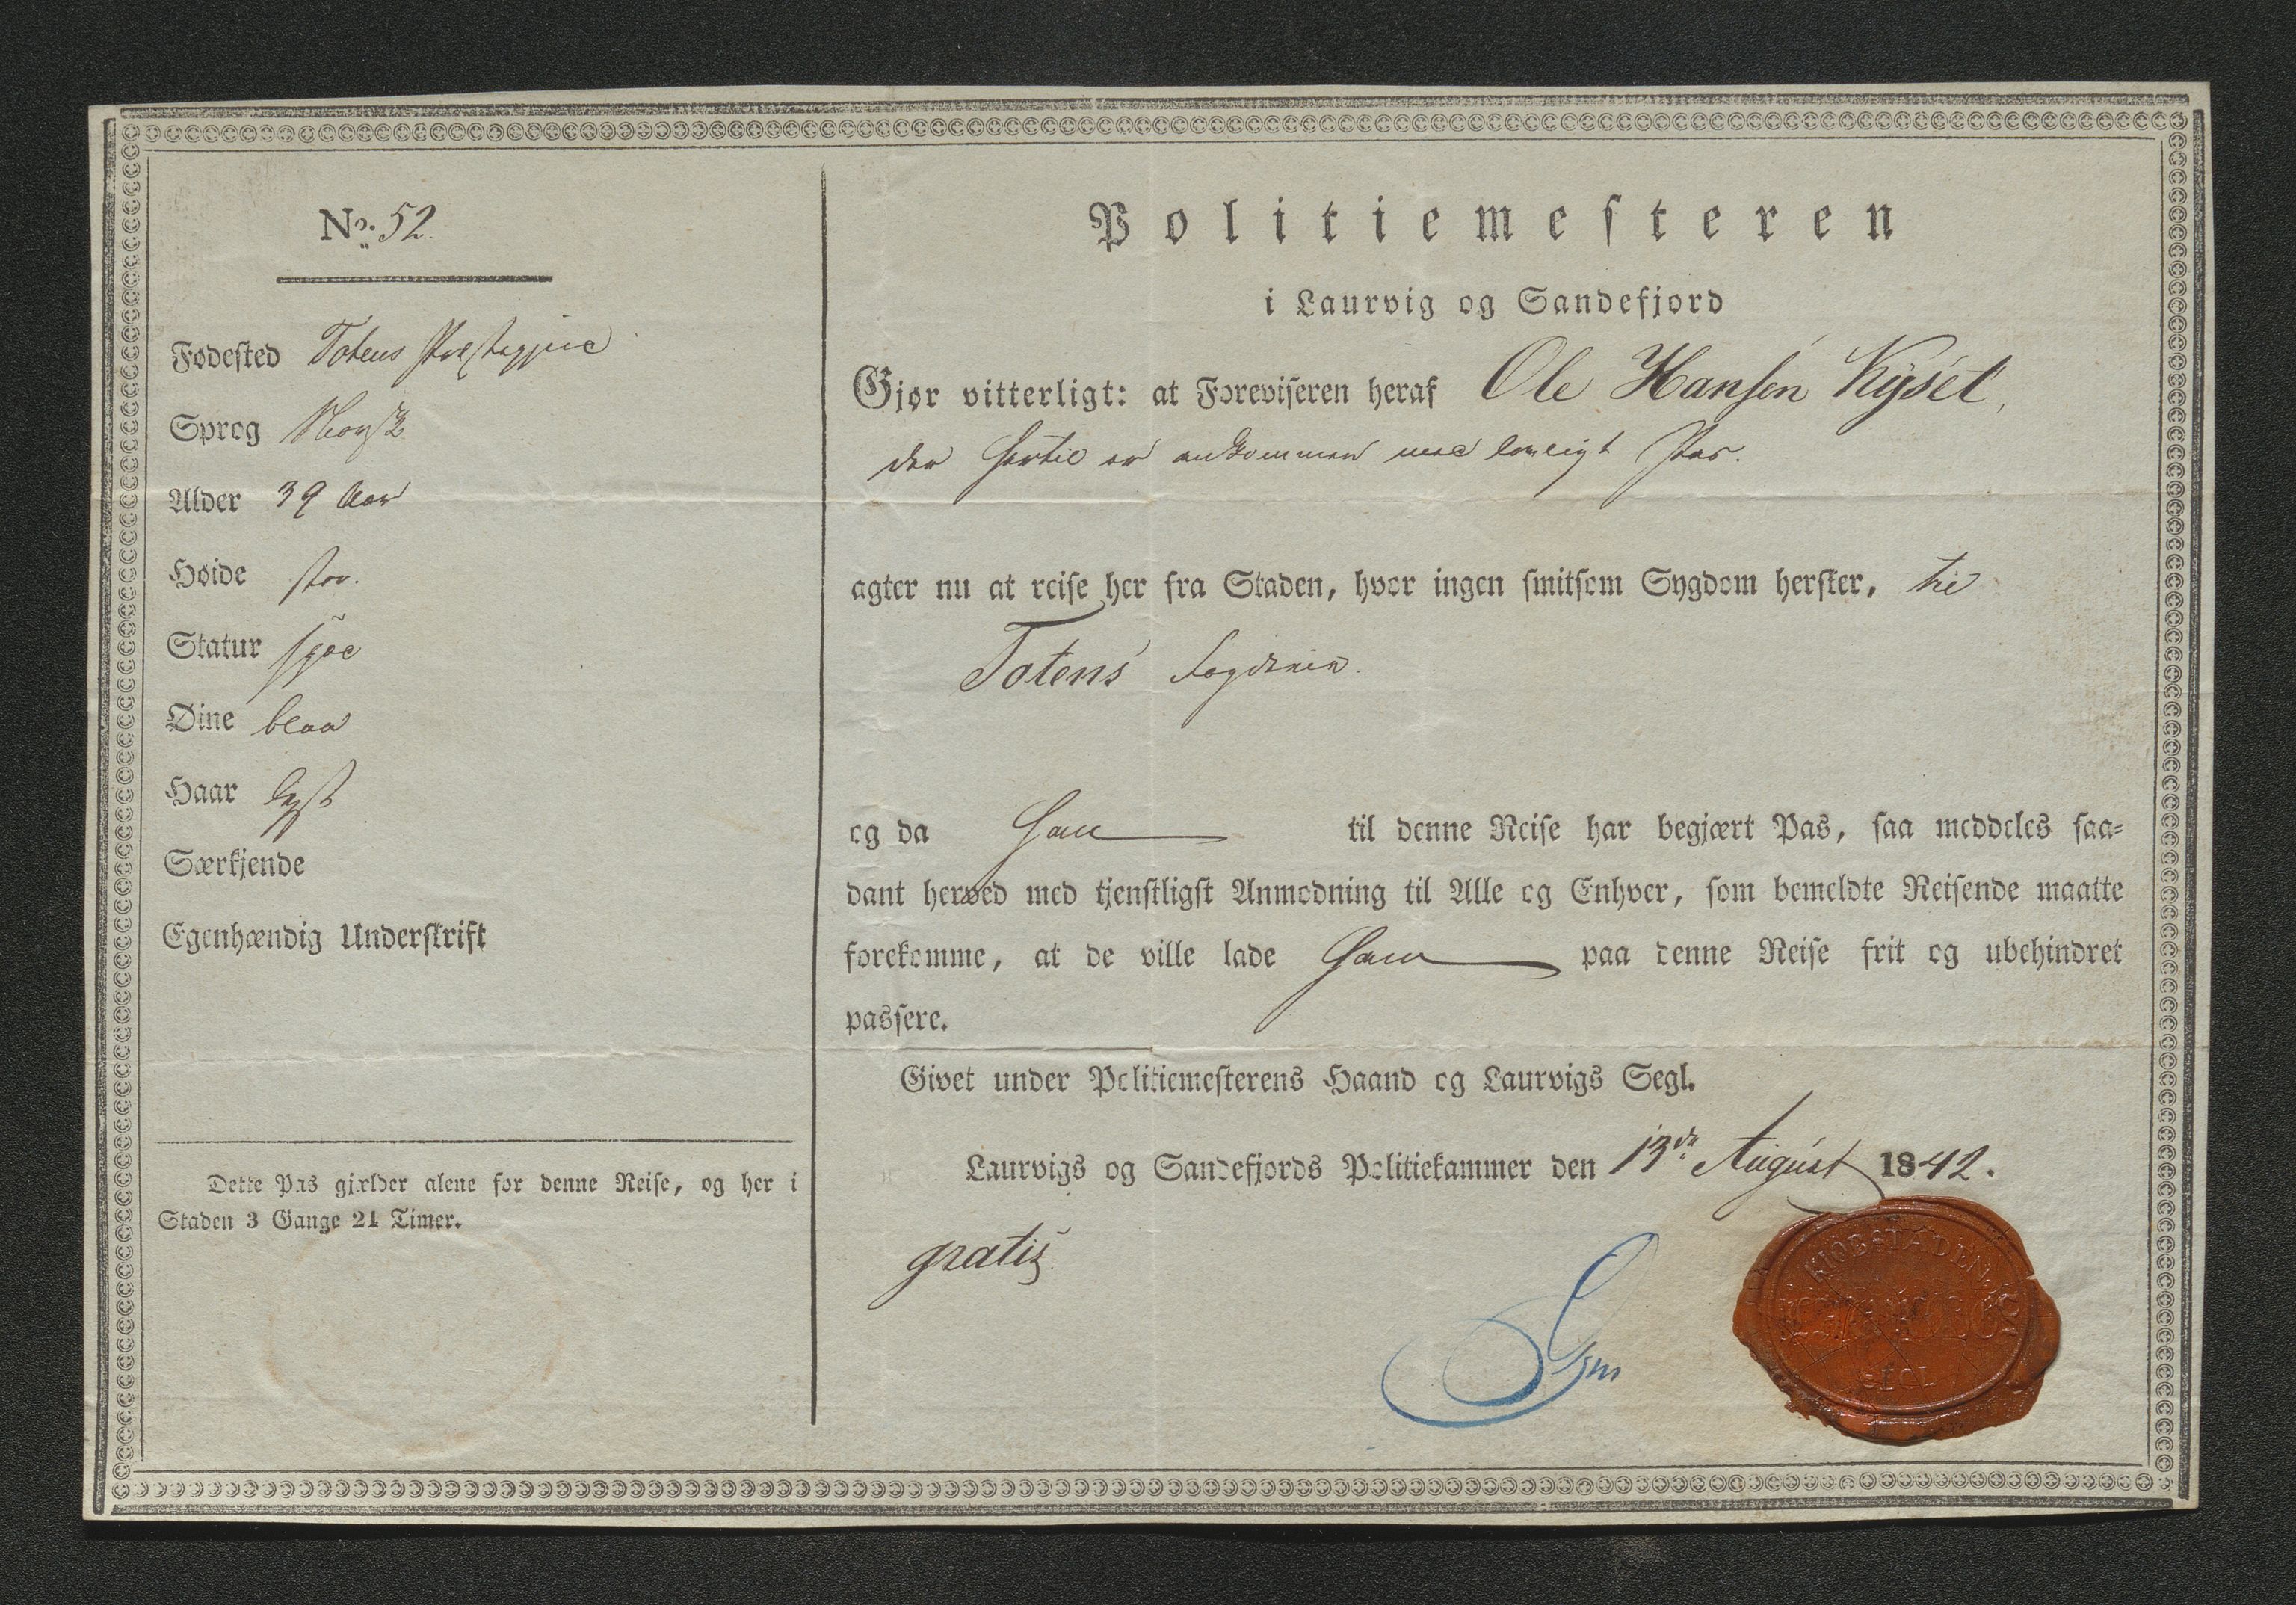 No. 52.
Fødested Totens Præstegjeld
Sprog Norsk
Alder 39 Aar
Høide stor.
Statur
Øine blaa
Haar lyst
Særkjende
Egenhændig Underskrift
Dette Pas gjælder alene for denne Reise, og her i
Staden 3 Gange 24 Timer.
Politiemesteren
i Laurvig og Sandefjord
Gjør vitterligt: at Foreviseren heraf Ole Hansen Kysel,
der hertil er ankommen med lovligt Pas.
agter nu at reise her fra Staden, hvor ingen smitsom Sygdom hersker, til
Totens Fogderie.
og da han til denne Reise har begjært Pas, saa meddeles saa-
dant herved med tjenstligst Anmodning til Alle og Enhver, som bemeldte Reisende maatte
forekomme, at de ville lade ham paa denne Reise frit og ubehindret
passere.
Givet under Politiemesterens Haand og Laurvigs Segl.
Laurvigs og Sandefjords Politiekammer den 13de August 1842.
gratis.
KIOBSTADEN
SEGL